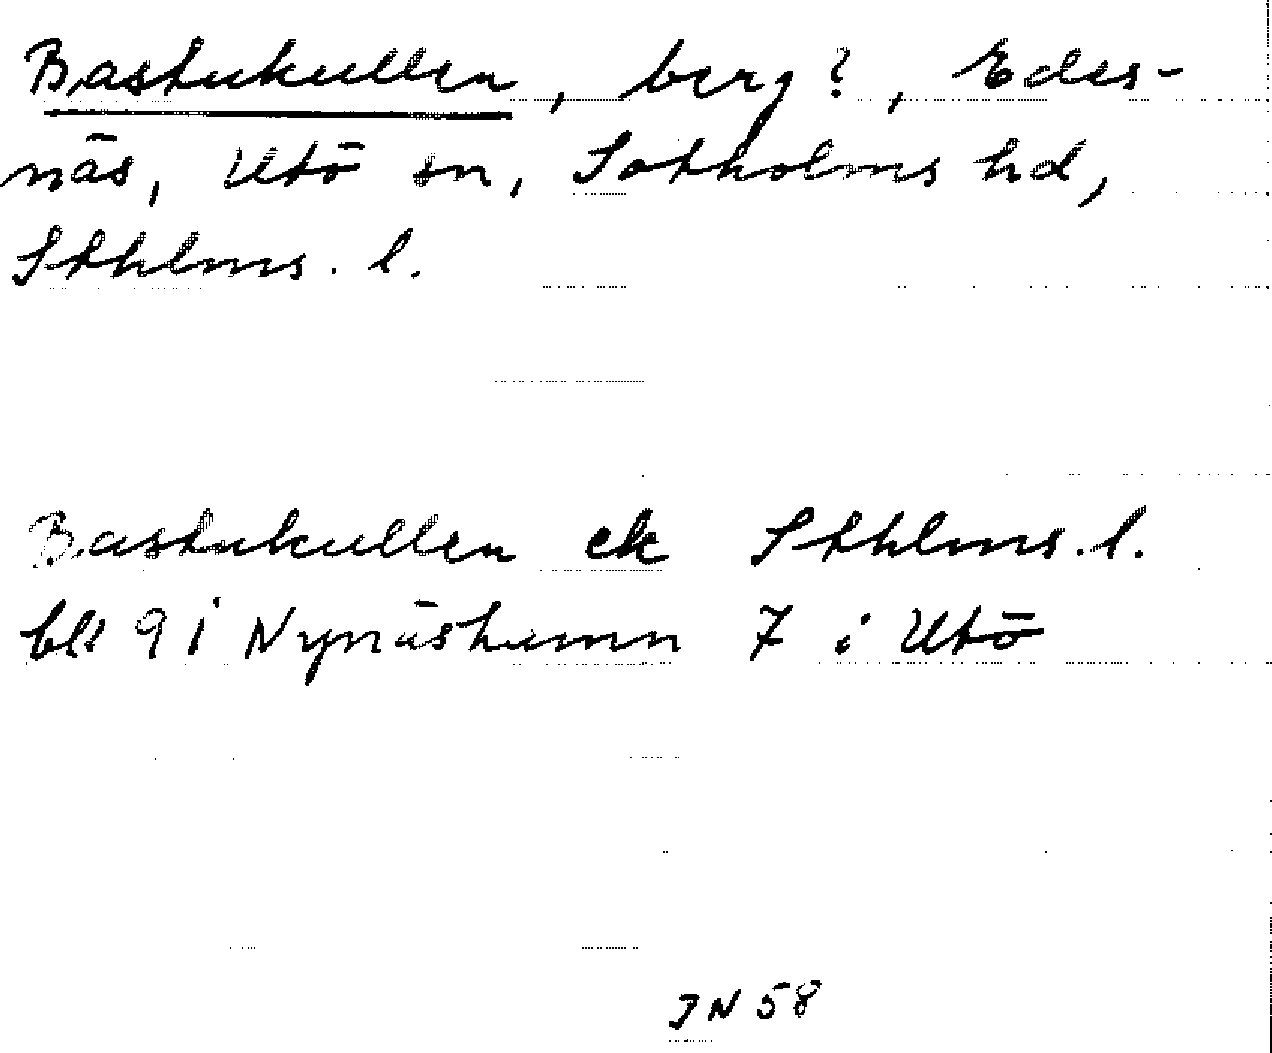 Bastukullen, berg?, Edes-
näs, Utö sn, Sotholms hd,
Sthlms. l.
Bastukullen ek Sthlms. l.
bl 9 i Nynäshamn 7 i Utö
JN 58